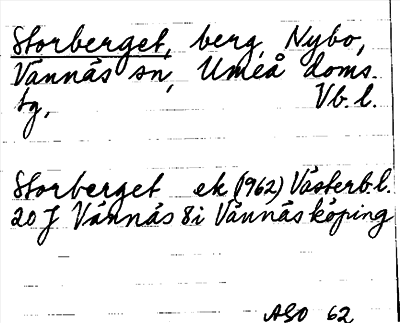 Storberget, berg, Nybo,
Vännäs sn, Umeå doms.
tg, Vb. l.
Storberget ek (1962) Västerb.l.
20 J Vännäs 8 i Vännäs köping
ASO 62